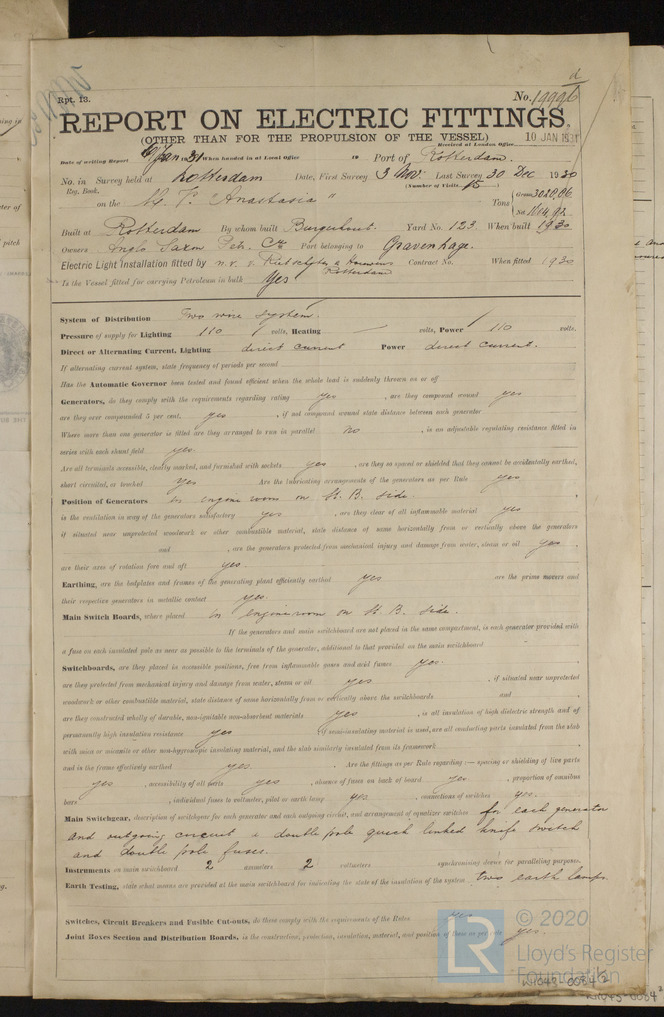 Rpt. 13.
No. 19996
REPORT ON ELECTRIC FITTINGS,
(OTHER THAN FOR THE PROPULSION OF THE VESSEL)
10 JAN 1931
Received at London Office
Date of writing Report Jan 31 When handed in at Local Office 19 Port of Rotterdam.
No. in Survey held at Rotterdam Date, First Survey 3 Nov. Last Survey 30 Dec 1930
Reg. Book. (Number of Visits 15)
on the "Anastasia" Tons Gross
Net
Built at Rotterdam By whom built Burgerhout. Yard No. 123. When built 1930
Owners Anglo Saxon Petr. Co. Port belonging to Gravenhage.
Electric Light Installation fitted by n.v. Contract No. When fitted 1930
Rotterdam
Is the Vessel fitted for carrying Petroleum in bulk Yes
System of Distribution Two wire system.
Pressure of supply for Lighting 110 volts, Heating — volts, Power 110 volts.
Direct or Alternating Current, Lighting direct current Power direct current.
If alternating current system, state frequency of periods per second
Has the Automatic Governor been tested and found efficient when the whole load is suddenly thrown on or off
Generators, do they comply with the requirements regarding rating yes, are they compound wound yes
are they over compounded 5 per cent. yes, if not compound wound state distance between each generator
Where more than one generator is fitted are they arranged to run in parallel no, is an adjustable regulating resistance fitted in
series with each shunt field yes.
Are all terminals accessible, clearly marked, and furnished with sockets yes, are they so spaced or shielded that they cannot be accidentally earthed,
short circuited, or touched yes Are the lubricating arrangements of the generators as per Rule yes
Position of Generators in engine room on St. B. side.
is the ventilation in way of the generators satisfactory yes, are they clear of all inflammable material yes
if situated near unprotected woodwork or other combustible material, state distance of same horizontally from or vertically above the generators
and , are the generators protected from mechanical injury and damage from water, steam or oil yes.
are their axes of rotation fore and aft yes.
Earthing, are the bedplates and frames of the generating plant efficiently earthed yes are the prime movers and
their respective generators in metallic contact yes.
Main Switch Boards, where placed in engineroom on St. B. side.
If the generators and main switchboard are not placed in the same compartment, is each generator provided with
a fuse on each insulated pole as near as possible to the terminals of the generator, additional to that provided on the main switchboard
Switchboards, are they placed in accessible positions, free from inflammable gases and acid fumes yes.
are they protected from mechanical injury and damage from water, steam or oil yes. , if situated near unprotected
woodwork or other combustible material, state distance of same horizontally from or vertically above the switchboards and
are they constructed wholly of durable, non-ignitable non-absorbent materials yes, is all insulation of high dielectric strength and of
permanently high insulation resistance yes If semi-insulating material is used, are all conducting parts insulated from the slab
with mica or micanite or other non-hygroscopic insulating material, and the slab similarly insulated from its framework
and is the frame effectively earthed yes. Are the fittings as per Rule regarding:— spacing or shielding of live parts
yes, accessibility of all parts yes, absence of fuses on back of board yes, proportion of omnibus
bars , individual fuses to voltmeter, pilot or earth lamp yes, connections of switches yes.
Main Switchgear, description of switchgear for each generator and each outgoing circuit, and arrangement of equalizer switches for each generator
and outgoing circuit a double pole quick linked knife switch
and double pole fuses.
Instruments on main switchboard 2 ammeters 2 voltmeters synchronising device for paralleling purposes.
Earth Testing, state what means are provided at the main switchboard for indicating the state of the insulation of the system two earth lamps
Switches, Circuit Breakers and Fusible Cut-outs, do these comply with the requirements of the Rules yes
Joint Boxes Section and Distribution Boards, is the construction, protection, insulation, material, and position of these as per rule yes.
© 2020
LR
Lloyd's Register
Foundation
W1043-0084 2